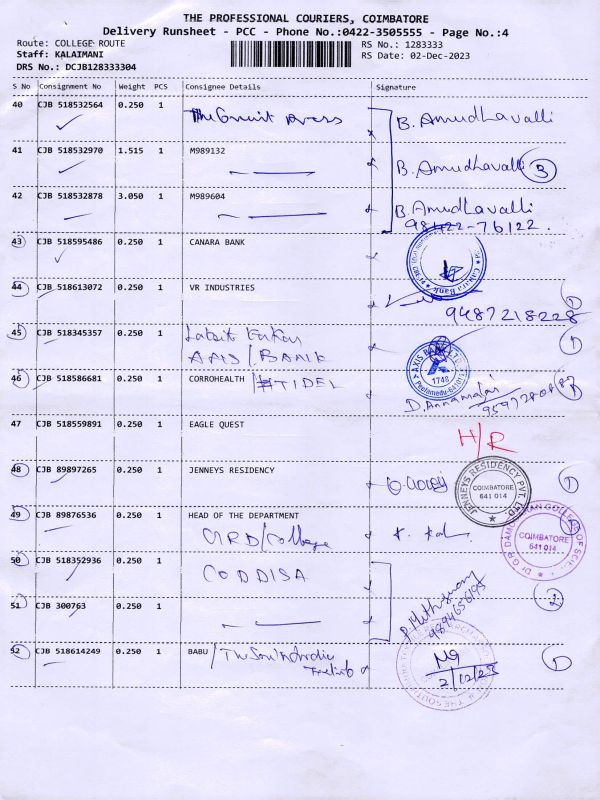 THE PROFESSIONAL COURIERS, COIMBATORE
Delivery Runsheet - PCC - Phone No.:0422-3505555 - Page No.:4
Route: COLLEGE ROUTE RS No.: 1283333
Staff: KALAIMANI RS Date: 02-Dec-2023
DRS No.: DCJB128333304
S No Consignment No Weight PCS Consignee Details Signature
40 CJB 518532564 0.250 1 B. Amudhavalli
41 CJB 518532970 1.515 1 M989132 B. Amudhavalli 3
42 CJB 518532878 3.050 1 M989604 B. Amudhavalli
98422-76122.
43 CJB 518595486 0.250 1 CANARA BANK
44 CJB 518613072 0.250 1 VR INDUSTRIES 1
9487218228
45 CJB 518345357 0.250 1 1
AXIS / BANK AXIS BANK LTD
1748
46 CJB 518586681 0.250 1 CORROHEALTH / TIDEL D. Annamalai 1
47 CJB 518559891 0.250 1 EAGLE QUEST H/R
48 CJB 89897265 0.250 1 JENNEYS RESIDENCY 1
JENNEYS RESIDENCY PVT. LTD.
COIMBATORE
641 014
49 CJB 89876536 0.250 1 HEAD OF THE DEPARTMENT
GRD / College
COIMBATORE
641 014
50 CJB 518352936 0.250 1 CODDISA
9894656195
51 CJB 300763 0.250 1 2
52 CJB 518614249 0.250 1 BABU / The South Indian 1
2/12/23